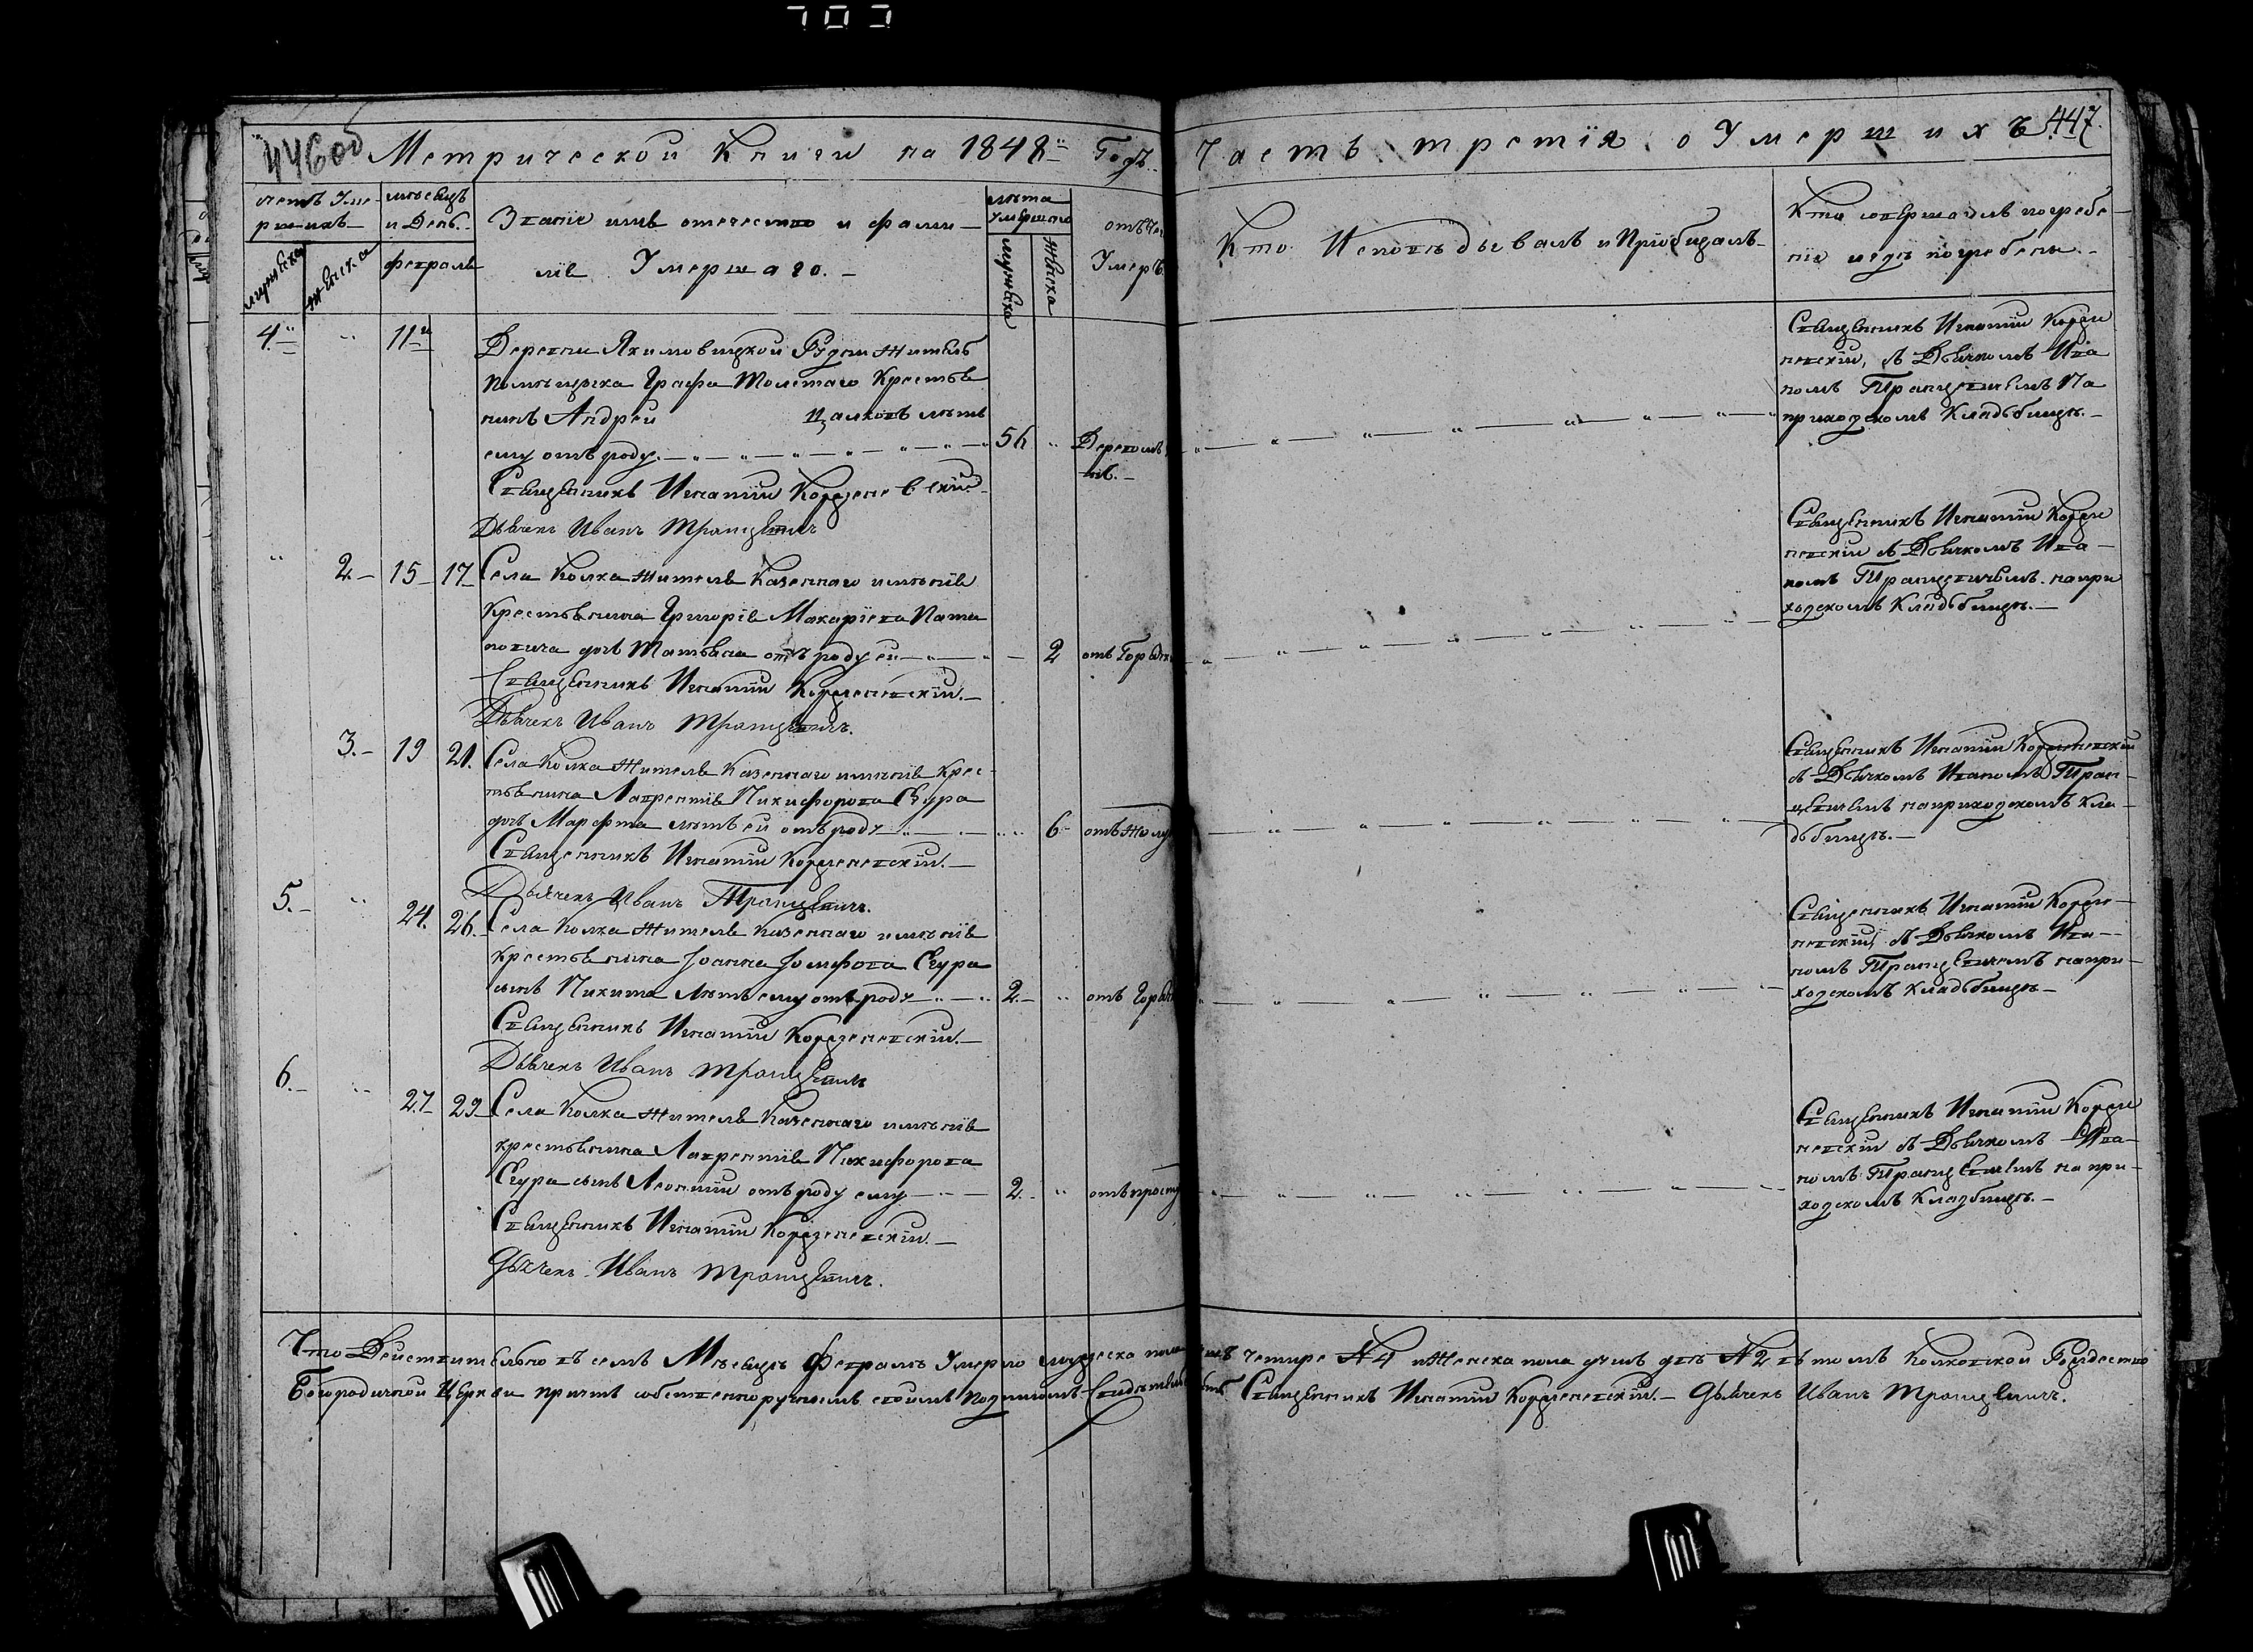 446об
Метрической Книги на 1848й Годъ
Часть третїя о Умершихъ 447
четъ Уме-
ршихъ
мѣсяцъ
и День
Званїе имя отечество и фами-
лїя Умершаго.-
лѣта
Умершаго
отъ Чего
Умеръ
мужеска
женска
февраль
мужеска
женска
Кто Исповѣдывалъ и Прїобщалъ-
Кто совершалъ погребе-
нїе и гдѣ погребены.-
4й " 11й
Деревни Якимовицкой Рудни житель
помѣщика Графа Толстаго Крестья
нинъ Андрей Цалковъ лѣтъ
ему отъ роду 56
Священникъ Игнатїй Корженевскїй
Дьячекъ Иванъ Транцевичъ
Священникъ Игнатїй Корже
невскїй, съ Дьячкомъ Ива
номъ Транцевичемъ На
приходскомъ Кладбищѣ.-
" 2.- 15 17
Села Колка жителя Казеннаго имѣнїя
Крестьянина Григорїя Макарїева
дочь Татьяна отъ роду ей 2 отъ Горячки
Священникъ Игнатїй Корженевскїй.-
Дьячекъ Иванъ Транцевичъ.
Священникъ Игнатїй Корже
невскїй съ Дьячкомъ Ива-
номъ Транцевичемъ на при
ходскомъ Кладбищѣ.-
3.- 19 21.
Села Колка жителя Казеннаго имѣнїя Крес-
тьянина Лаврентїя Никифорова Сгура
дочь Марфта лѣтъ ей отъ роду 6
Священникъ Игнатїй Корженевскїй.-
Дьячекъ Иванъ Транцевичъ.
Священникъ Игнатїй Корженевскїй
съ Дьячкомъ Иваномъ Тран-
цевичемъ на приходскомъ Кла-
дбищѣ.-
5.- " 24. 26.
Села Колка жителя Казеннаго имѣнїя
Крестьянина Іоанна Сгура
сынъ Никита лѣтъ ему отъ роду 2.- " отъ Горячк
Священникъ Игнатїй Корженевскїй.-
Дьячекъ Иванъ Транцевичъ
Священникъ Игнатїй Корже-
невскїй, съ Дьячкомъ Ива-
номъ Транцевичемъ на при-
ходскомъ Кладбищѣ-
6.- " 27 29
Села Колка жителя Казеннаго имѣнїя
крестьянина Лаврентїя Никифорова
Сгура сынъ Леонтїй отъ роду ему 2. " отъ просту
Священникъ Игнатїй Корженевскїй.-
Дьячекъ Иванъ Транцевичъ.
Священникъ Игнатїй Корже
невскїй съ Дьячкомъ Ива-
номъ Транцевичемъ на при-
ходскомъ Кладбищѣ.-
Что Действительно въ семъ Мѣсяцѣ Февралѣ Умерло мужеска пола четыре №4 и Женска пола душъ двѣ №2 въ томъ Колковской Рождество
Богородичной Церкви причтъ собственноручнымъ своимъ подписомъ Свидетельствуемъ Священникъ Игнатїй Корженевскїй.- Дьячекъ Иванъ Транцевичъ.